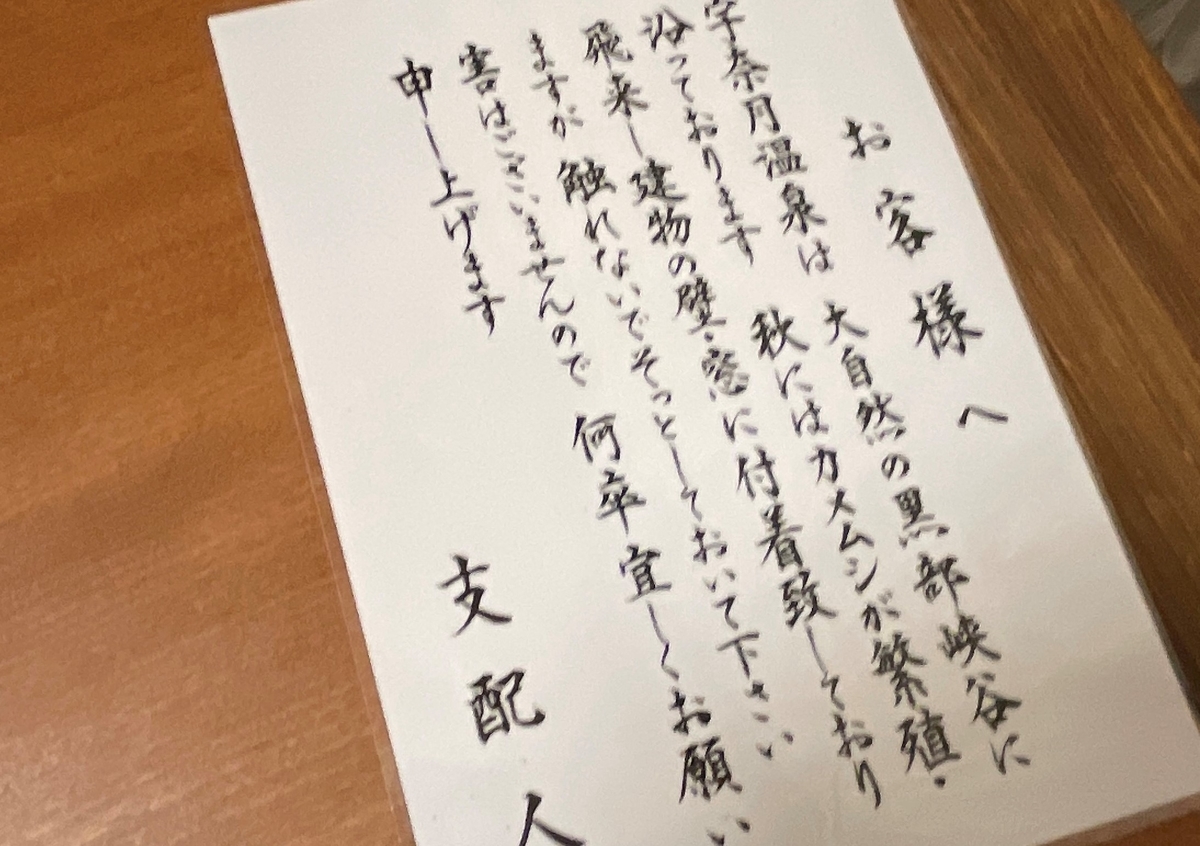 お客様へ
宇奈月温泉は 大自然の黒部峡谷に
沿っております 秋にはカメムシが繁殖・
飛来し建物の壁・窓に付着致しており
ますが 触れないでそっとしておいて下さい
害はございませんので 何卒宜しくお願い
申し上げます
支配人